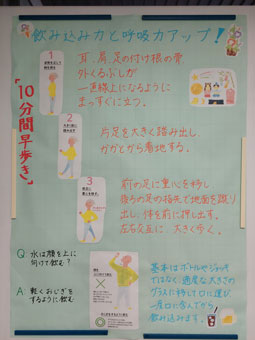 飲み込み力と呼吸力アップ!
「10分間早歩き」
1
耳、肩、足の付け根の骨
外くるぶしが
一直線上になるように
まっすぐに立つ。
2
片足を大きく踏み出し
かかとから着地する。
3
前の足に重心を移し
後ろの足の指先で地面を蹴り
出し、体を前に押し出す。
左右交互に 大きく歩く。
Q: 水は顔を上に
向けて飲む?
A: 軽くおじぎを
するように飲む
基本はボトルやジョッキ
ではなく 適度な大きさの
グラスに移して口に運び
一度口に含んでから
飲み込みます。